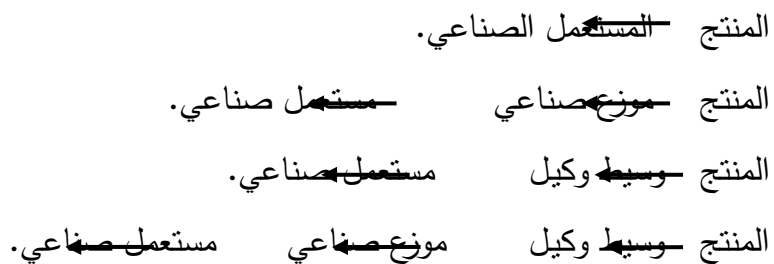 المنتج المستعمل الصناعي.
المنتج موزع صناعي مستعمل صناعي.
المنتج وسيط وكيل مستعمل صناعي.
المنتج وسيط وكيل موزع صناعي مستعمل صناعي.